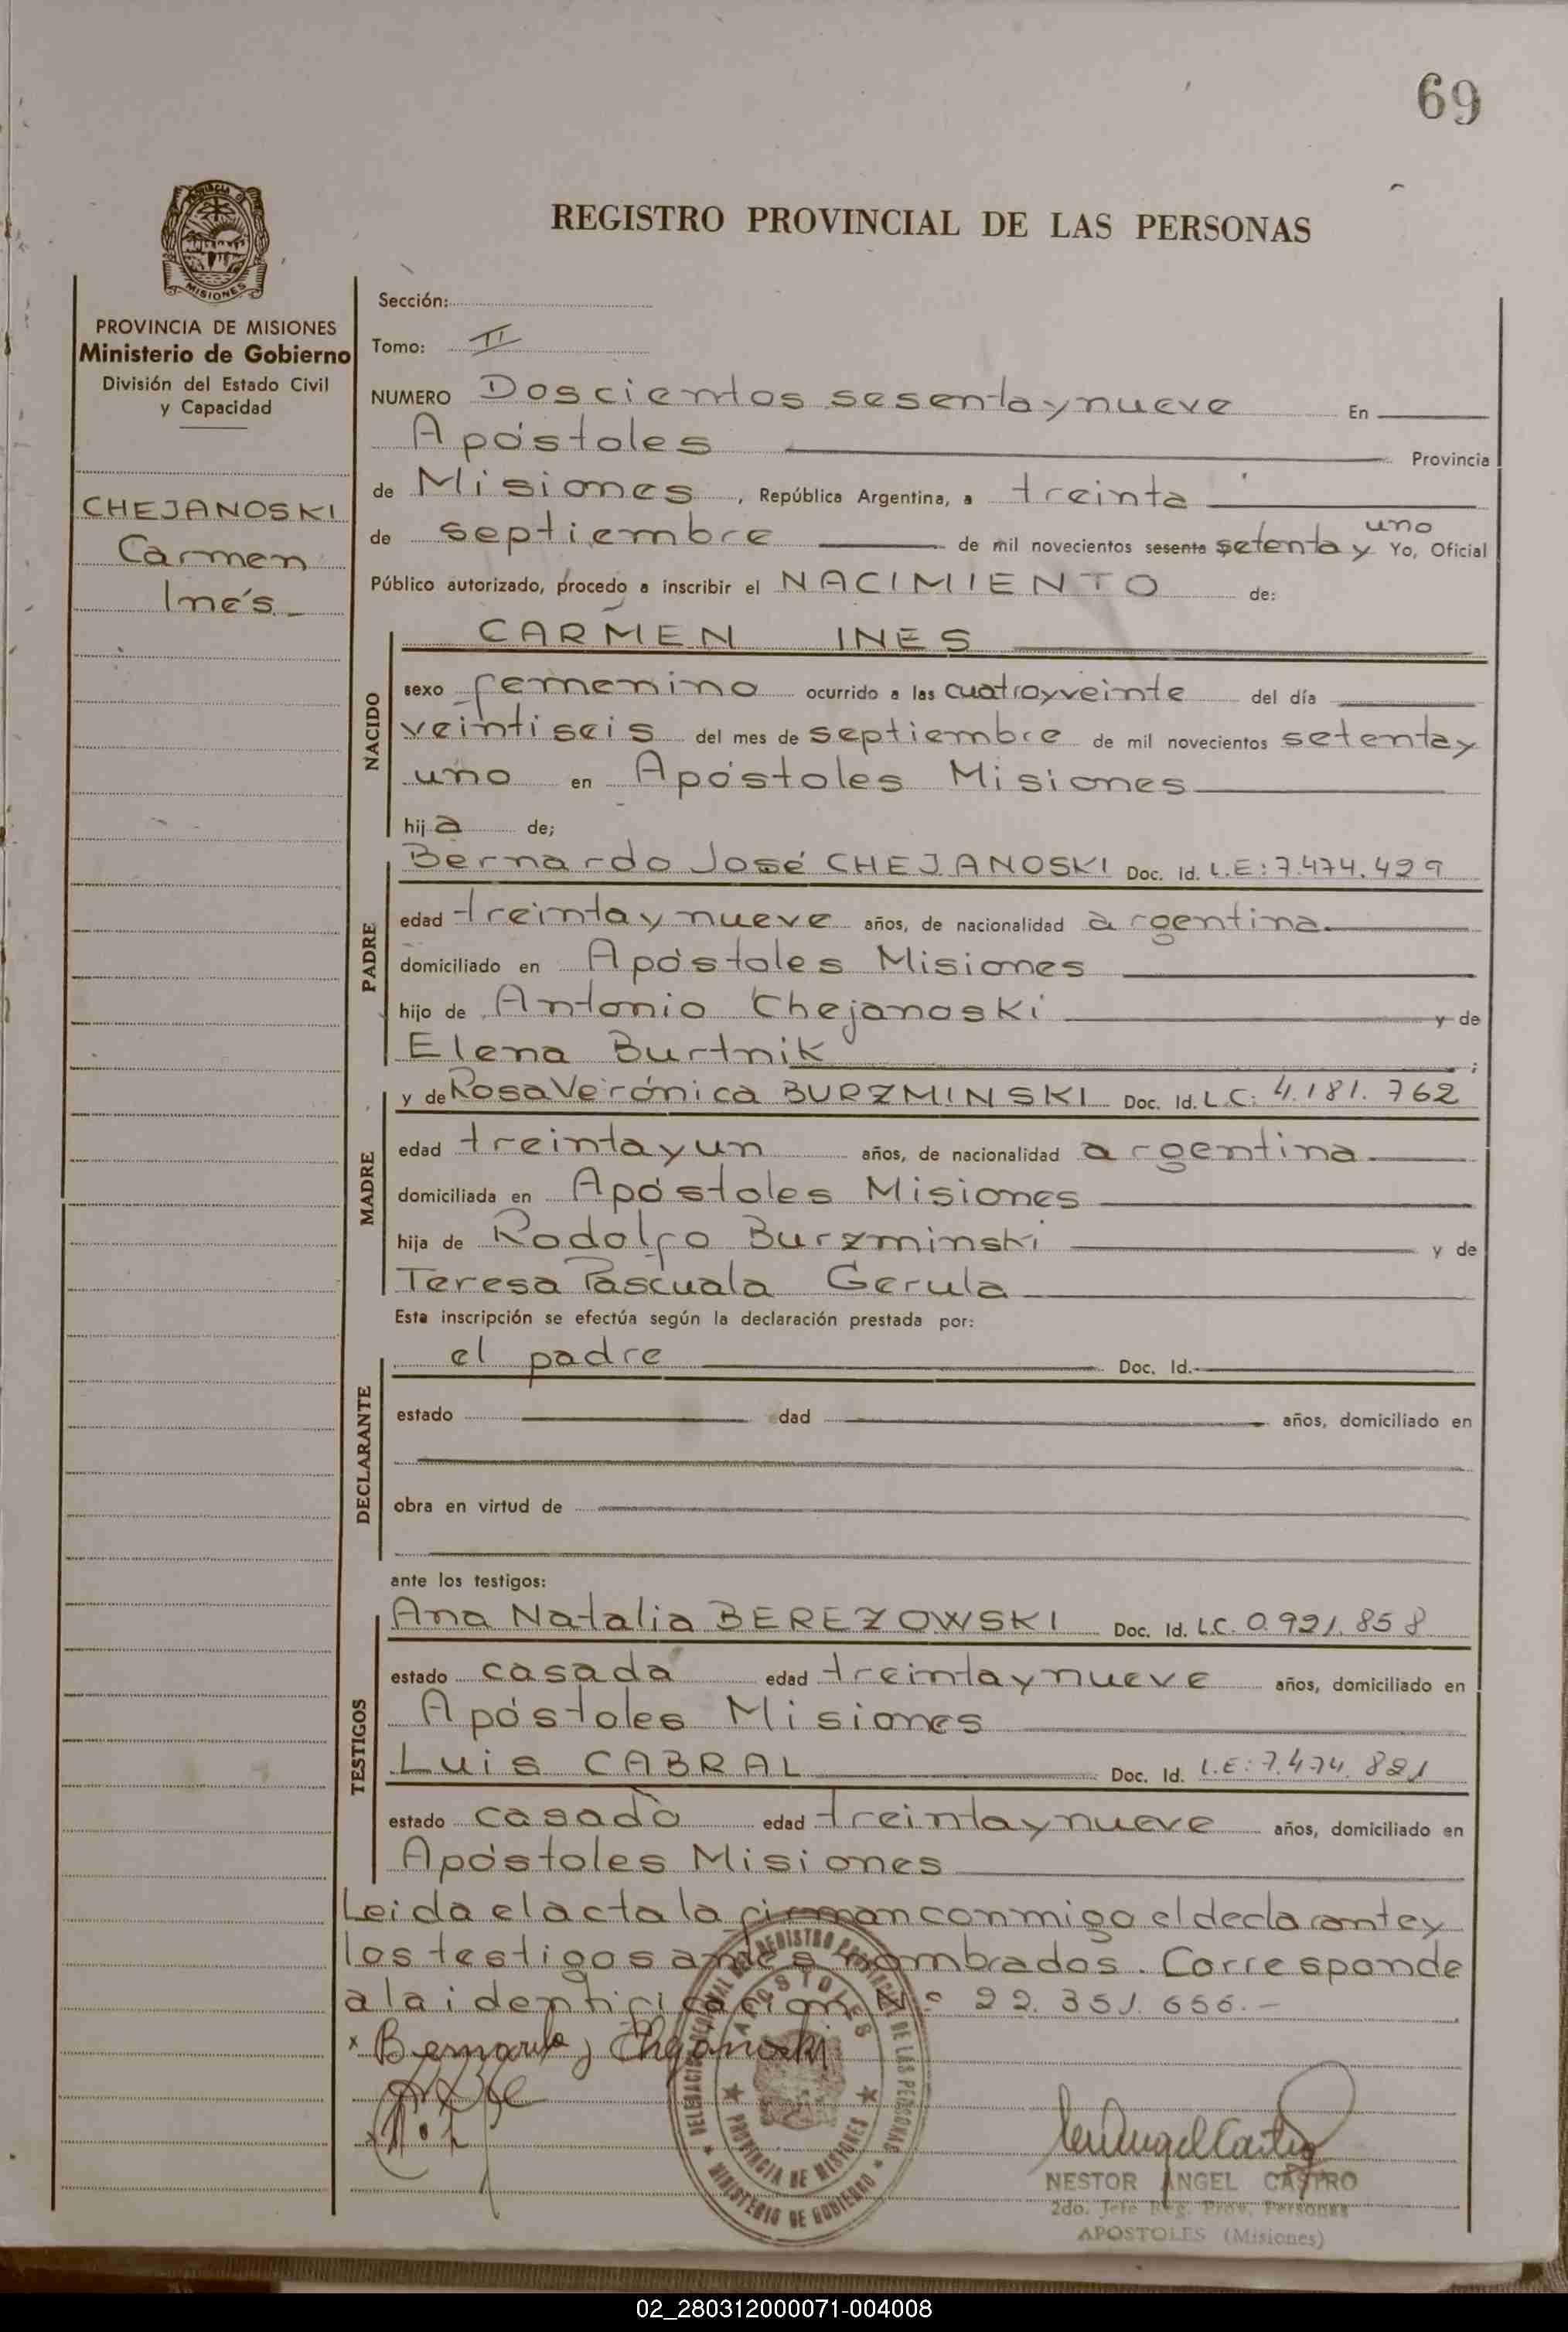 69
REGISTRO PROVINCIAL DE LAS PERSONAS
MISIONES
PROVINCIA DE MISIONES
Ministerio de Gobierno
División del Estado Civil
y Capacidad
CHEJANOSKI
Carmen
Inés
Sección:
Tomo: II
NUMERO Doscientos sesenta y nueve En
Apóstoles Provincia
de Misiones, República Argentina, a treinta
de septiembre de mil novecientos sesenta setenta y uno Yo, Oficial
Público autorizado, procedo a inscribir el NACIMIENTO de:
NACIDO
CARMEN INES
sexo femenino ocurrido a las cuatro y veinte del día
veintiseis del mes de septiembre de mil novecientos setenta y
uno en Apóstoles Misiones
hija de;
PADRE
Bernardo José CHEJANOSKI Doc. Id. L.E: 7.474.429
edad treinta y nueve años, de nacionalidad argentina.
domiciliado en Apóstoles Misiones
hijo de Antonio Chejanoski y de
Elena Burtnik;
MADRE
y de Rosa Verónica BURZMINSKI Doc. Id. L.C: 4.181.762
edad treinta y un años, de nacionalidad argentina
domiciliada en Apóstoles Misiones
hija de Rodolfo Burzminski y de
Teresa Pascuala Gerula
Esta inscripción se efectúa según la declaración prestada por:
DECLARANTE
el padre Doc. Id.
estado edad años, domiciliado en
obra en virtud de
ante los testigos:
TESTIGOS
Ana Natalia BEREZOWSKI Doc. Id. L.C. 0.921.858
estado casada edad treinta y nueve años, domiciliado en
Apóstoles Misiones
Luis CABRAL Doc. Id. L.E: 7.474.821
estado casado edad treinta y nueve años, domiciliado en
Apóstoles Misiones
Leida el acta la firman conmigo el declarante y
los testigos antes nombrados. Corresponde
a la identificación Nº 22.351.656.-
x Bernardo J Chejanoski
DELEGACION REGIONAL DEL REGISTRO PROVINCIAL DE LAS PERSONAS
APOSTOLES
PROVINCIA DE MISIONES
MINISTERIO DE GOBIERNO
NESTOR ANGEL CASTRO
2do. Jefe Reg. Prov. Personas
APOSTOLES (Misiones)
02_280312000071-004008